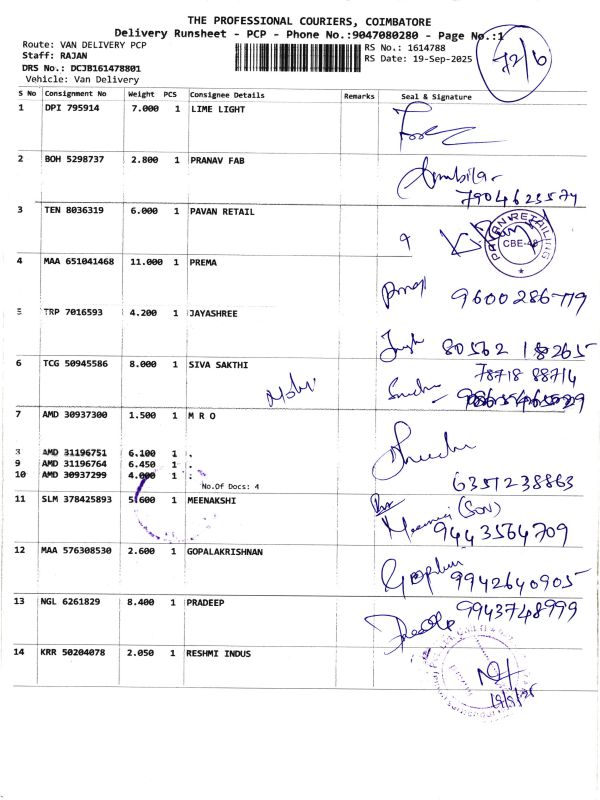 THE PROFESSIONAL COURIERS, COIMBATORE
Delivery Runsheet - PCP - Phone No.:9047080280 - Page No.:1
Route: VAN DELIVERY PCP
Staff: RAJAN
DRS No.: DCJB161478801
Vehicle: Van Delivery
RS No.: 1614788
RS Date: 19-Sep-2025
72/6
S No Consignment No Weight PCS Consignee Details Remarks Seal & Signature
1 DPI 795914 7.000 1 LIME LIGHT
2 BOH 5298737 2.800 1 PRANAV FAB
7904623574
3 TEN 8036319 6.000 1 PAVAN RETAIL
PAVAN RETAILING
CBE-48
4 MAA 651041468 11.000 1 PREMA
9600286779
5 TRP 7016593 4.200 1 JAYASHREE
80562 18265
6 TCG 50945586 8.000 1 SIVA SAKTHI
78718 88714
7 AMD 30937300 1.500 1 M R O
8 AMD 31196751 6.100 1 .
9 AMD 31196764 6.450 1 .
10 AMD 30937299 4.000 1 .
No.Of Docs: 4
6351238863
11 SLM 378425893 5.600 1 MEENAKSHI
(SON)
9443564709
12 MAA 576308530 2.600 1 GOPALAKRISHNAN
9942640905
13 NGL 6261829 8.400 1 PRADEEP
9943748999
14 KRR 50204078 2.050 1 RESHMI INDUS